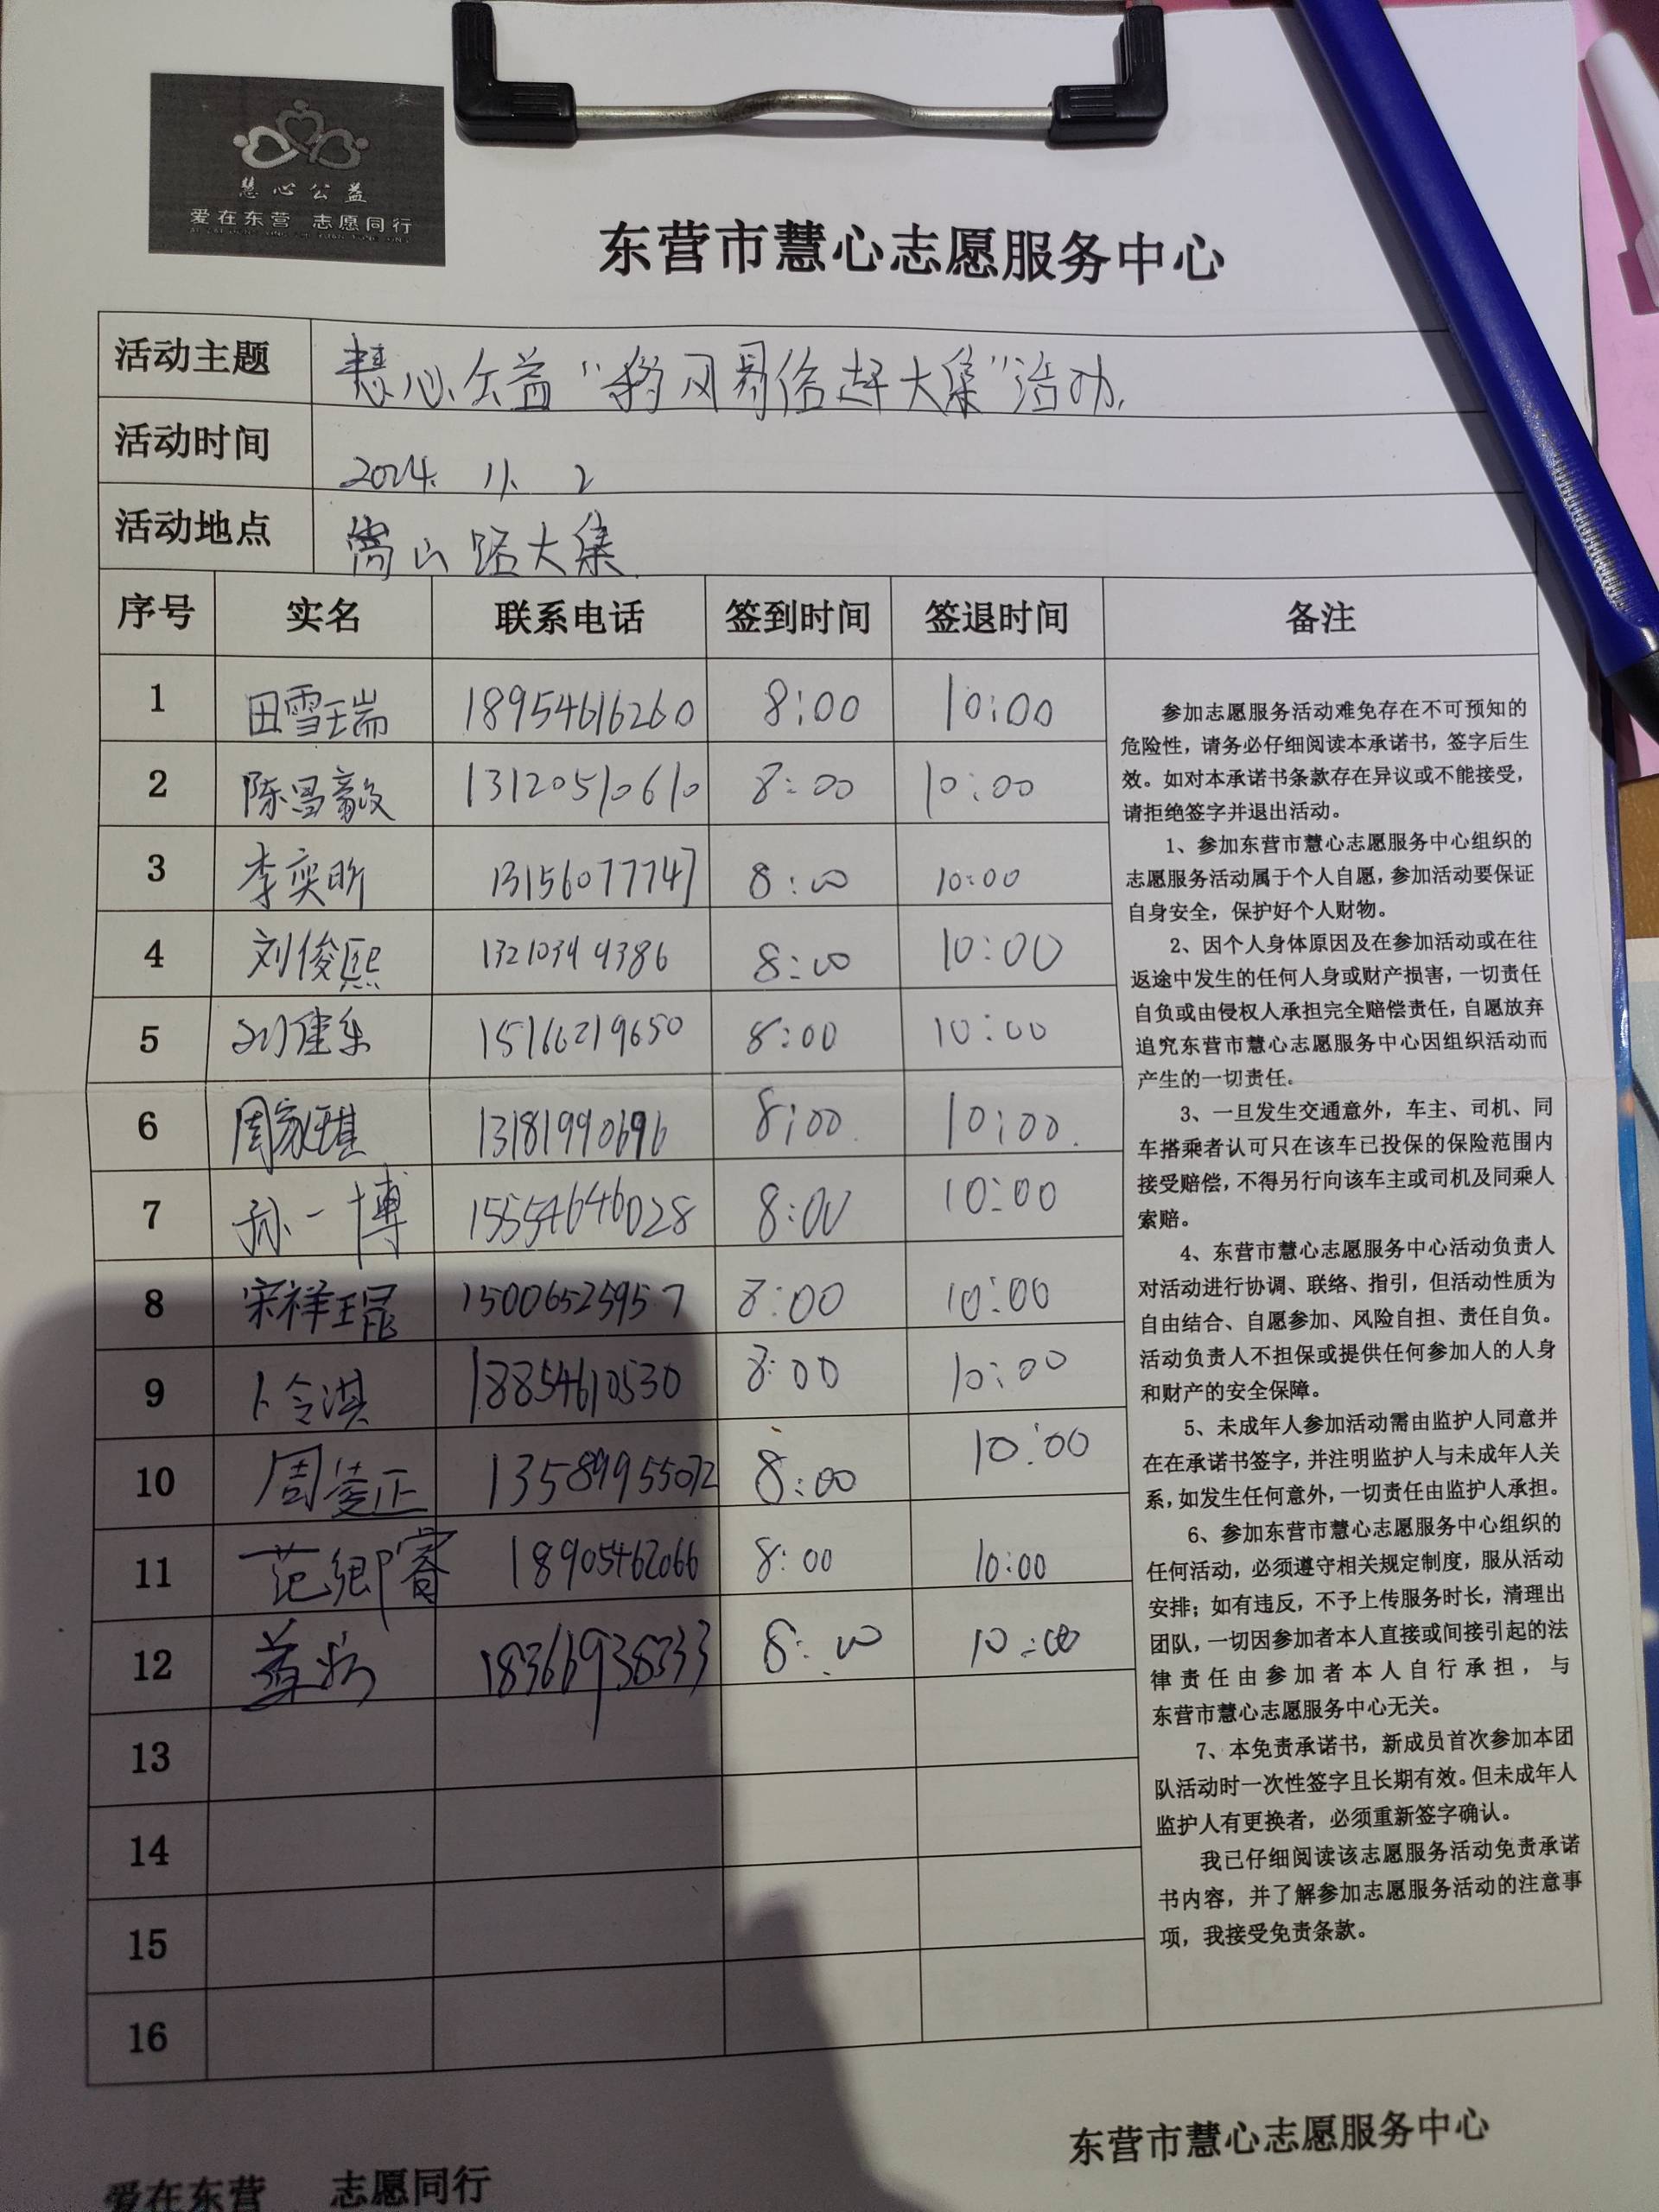 慧心公益
爱在东营 志愿同行
东营市慧心志愿服务中心
活动主题 慧心公益“移风易俗赶大集”活动
活动时间 2024. 11. 2
活动地点 嵩山路大集
序号 实名 联系电话 签到时间 签退时间 备注
1 田雪瑞 18954616260 8:00 10:00
2 陈昌毅 13120510610 8:00 10:00
3 李奕昕 13156077747 8:00 10:00
4 刘俊熙 13210349386 8:00 10:00
5 刘健乐 15166219650 8:00 10:00
6 周家琪 13181990696 8:00 10:00
7 孙一博 15554646028 8:00 10:00
8 宋祥琨 15006525957 8:00 10:00
9 卜令淇 18854610530 8:00 10:00
10 周凌正 13589955072 8:00 10:00
11 范卿睿 18905462066 8:00 10:00
12 18366938333 8:00 10:00
13
14
15
16
参加志愿服务活动难免存在不可预知的
危险性，请务必仔细阅读本承诺书，签字后生
效。如对本承诺书条款存在异议或不能接受，
请拒绝签字并退出活动。
1、参加东营市慧心志愿服务中心组织的
志愿服务活动属于个人自愿，参加活动要保证
自身安全，保护好个人财物。
2、因个人身体原因及在参加活动或在往
返途中发生的任何人身或财产损害，一切责任
自负或由侵权人承担完全赔偿责任，自愿放弃
追究东营市慧心志愿服务中心因组织活动而
产生的一切责任。
3、一旦发生交通意外，车主、司机、同
车搭乘者认可只在该车已投保的保险范围内
接受赔偿，不得另行向该车主或司机及同乘人
索赔。
4、东营市慧心志愿服务中心活动负责人
对活动进行协调、联络、指引，但活动性质为
自由结合、自愿参加、风险自担、责任自负。
活动负责人不担保或提供任何参加人的人身
和财产的安全保障。
5、未成年人参加活动需由监护人同意并
在在承诺书签字，并注明监护人与未成年人关
系，如发生任何意外，一切责任由监护人承担。
6、参加东营市慧心志愿服务中心组织的
任何活动，必须遵守相关规定制度，服从活动
安排；如有违反，不予上传服务时长，清理出
团队，一切因参加者本人直接或间接引起的法
律责任由参加者本人自行承担，与
东营市慧心志愿服务中心无关。
7、本免责承诺书，新成员首次参加本团
队活动时一次性签字且长期有效。但未成年人
监护人有更换者，必须重新签字确认。
我已仔细阅读该志愿服务活动免责承诺
书内容，并了解参加志愿服务活动的注意事
项，我接受免责条款。
东营市慧心志愿服务中心
爱在东营 志愿同行